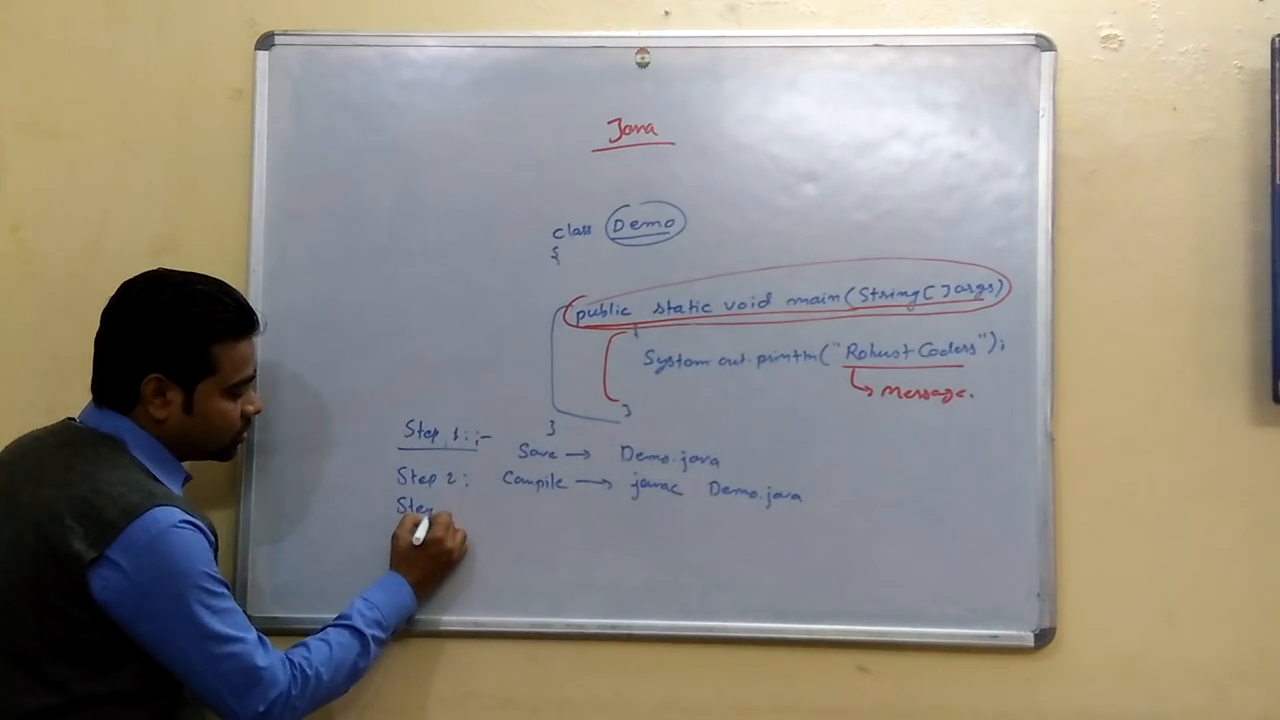 Java
class Demo
{
public static void main(String[] args)
{
System.out.println("Robust Coders");
Message.
}
}
Step 1:-
Save → Demo.java
Step 2: Compile → javac Demo.java
Step